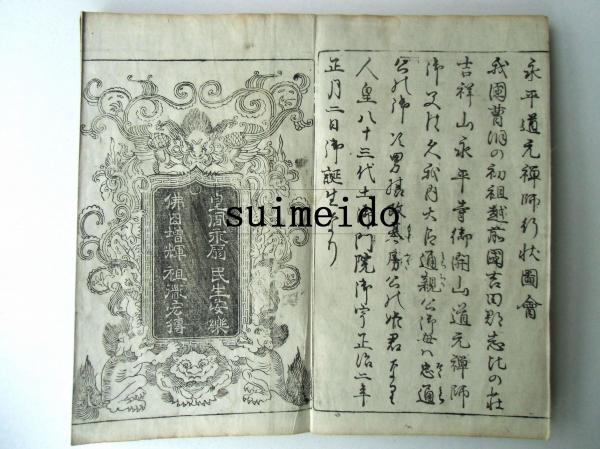 永平道元禅師行状圖會
我國曹洞の初祖越前國吉田郡志比の荘
吉祥山永平寺御開山道元禅師
御父は久我内大臣通親公御母は忠通
公の御
人皇八十三代土御門院御宇正治二年
正月二日御誕生なり
皇圖永扇 民生安樂
佛日增輝 祖
suimeido